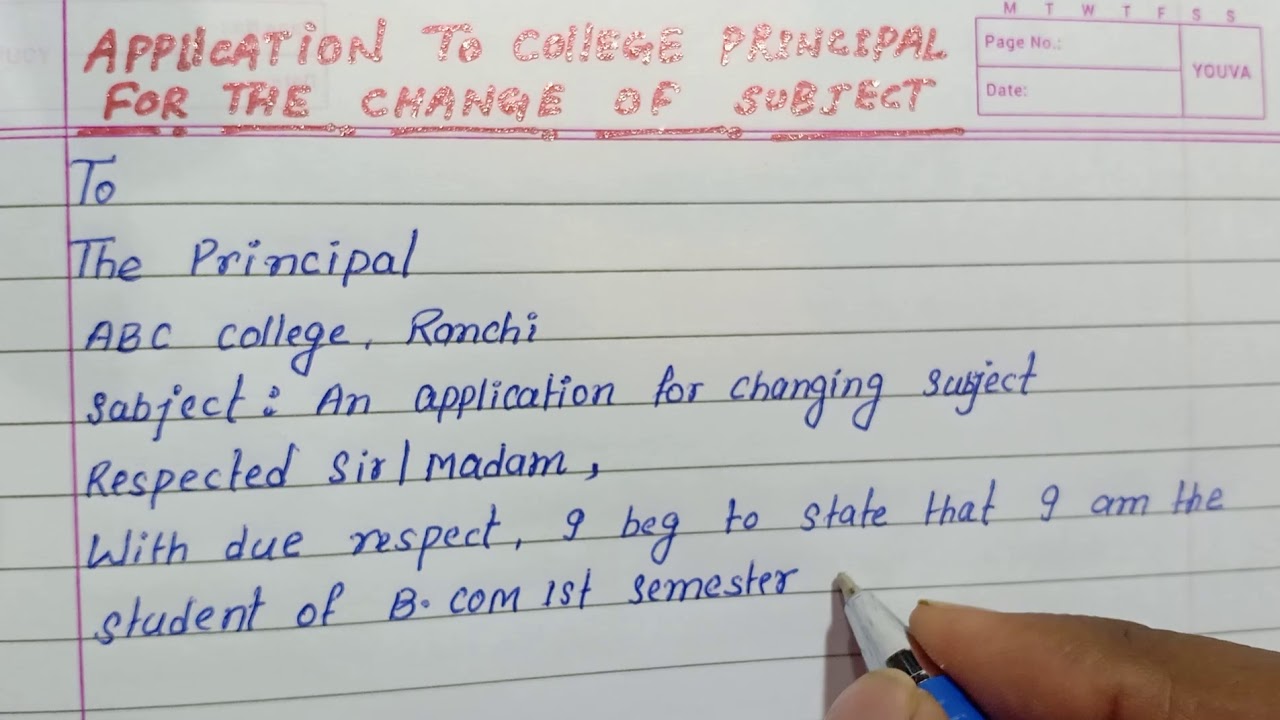 APPLICATION TO COLLEGE PRINCIPAL
FOR THE CHANGE OF SUBJECT
M T W T F S S
Page No.:
YOUVA
Date:
To
The Principal
ABC college, Ranchi
Subject: An application for changing subject
Respected Sir/madam,
With due respect, I beg to state that I am the
student of B.com 1st semester